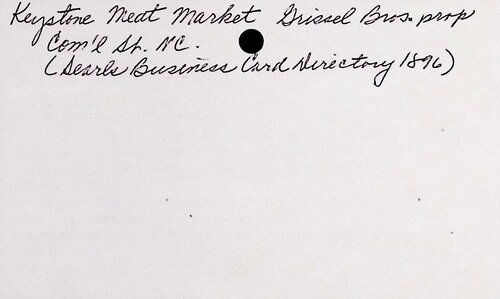 Keystone Meat Market Grissel Bros. prop
Com'l St. N.C.
(Searls Business Card Directory 1896)